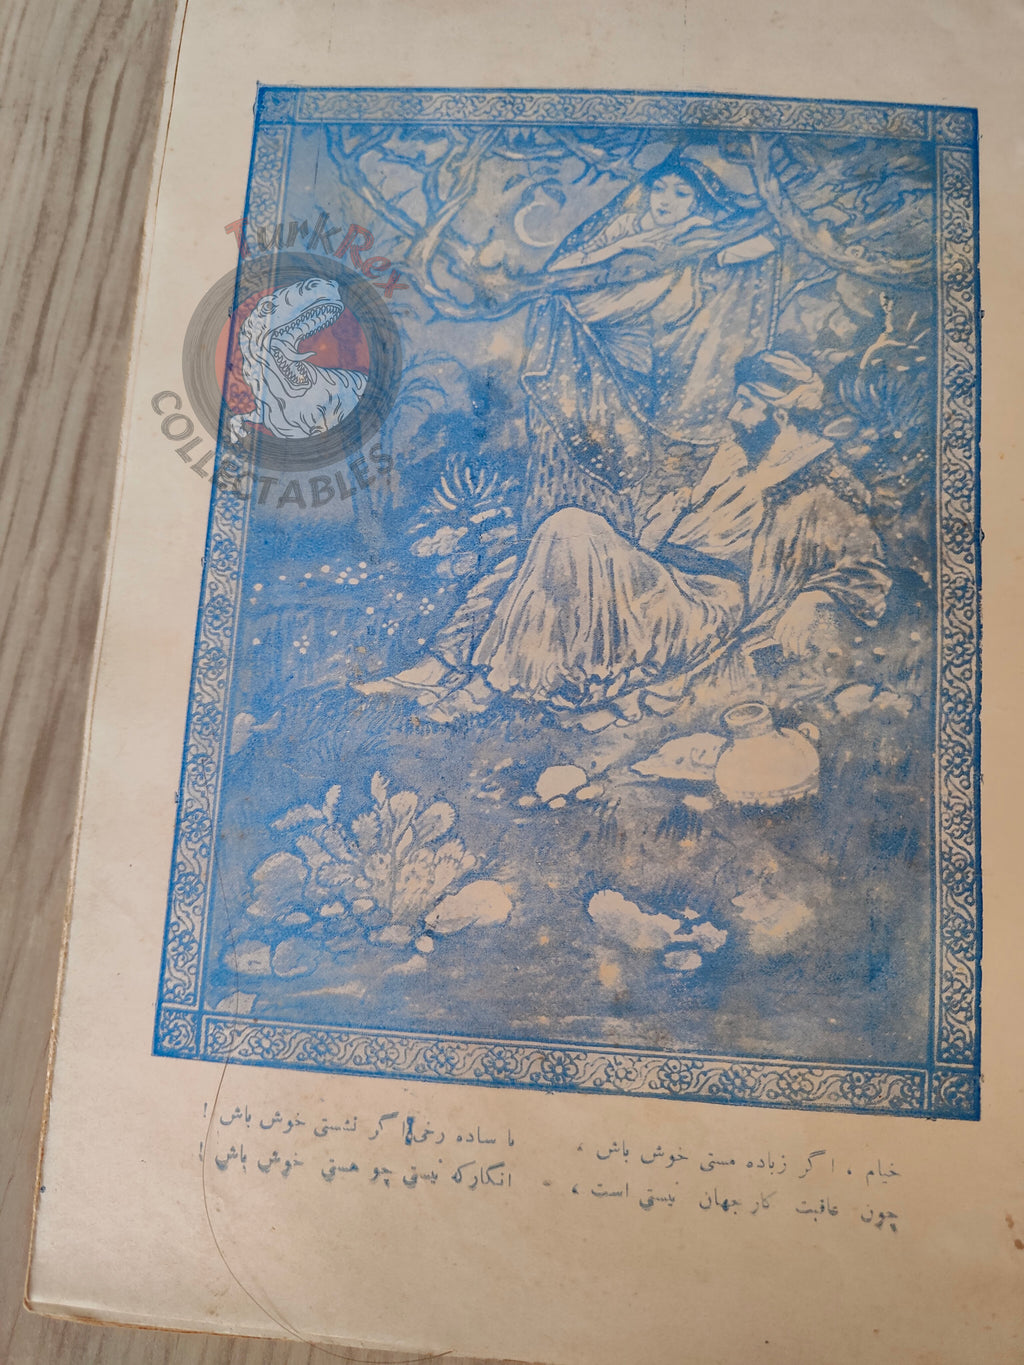 TurkRex
COLLECTABLES
خیام ، اگر زباده مستی خوش باش ،
با ساده رخی اگر نشستی خوش باش !
چون عاقبت کار جهان نیستی است ،
انگار که نیستی چو هستی خوش باش !